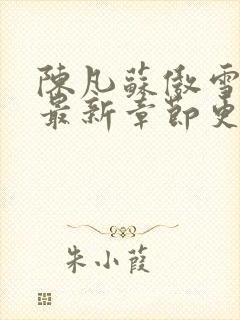 陳凡蘇傲雪
最新章節更
朱小葭